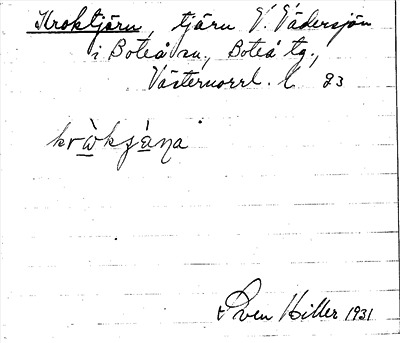 Kroktjärn, tjärn V. Vädersjön
i Boteå sn, Boteå tg.,
Västernorrl. l 23
kràkjána
Sven Hiller 1931